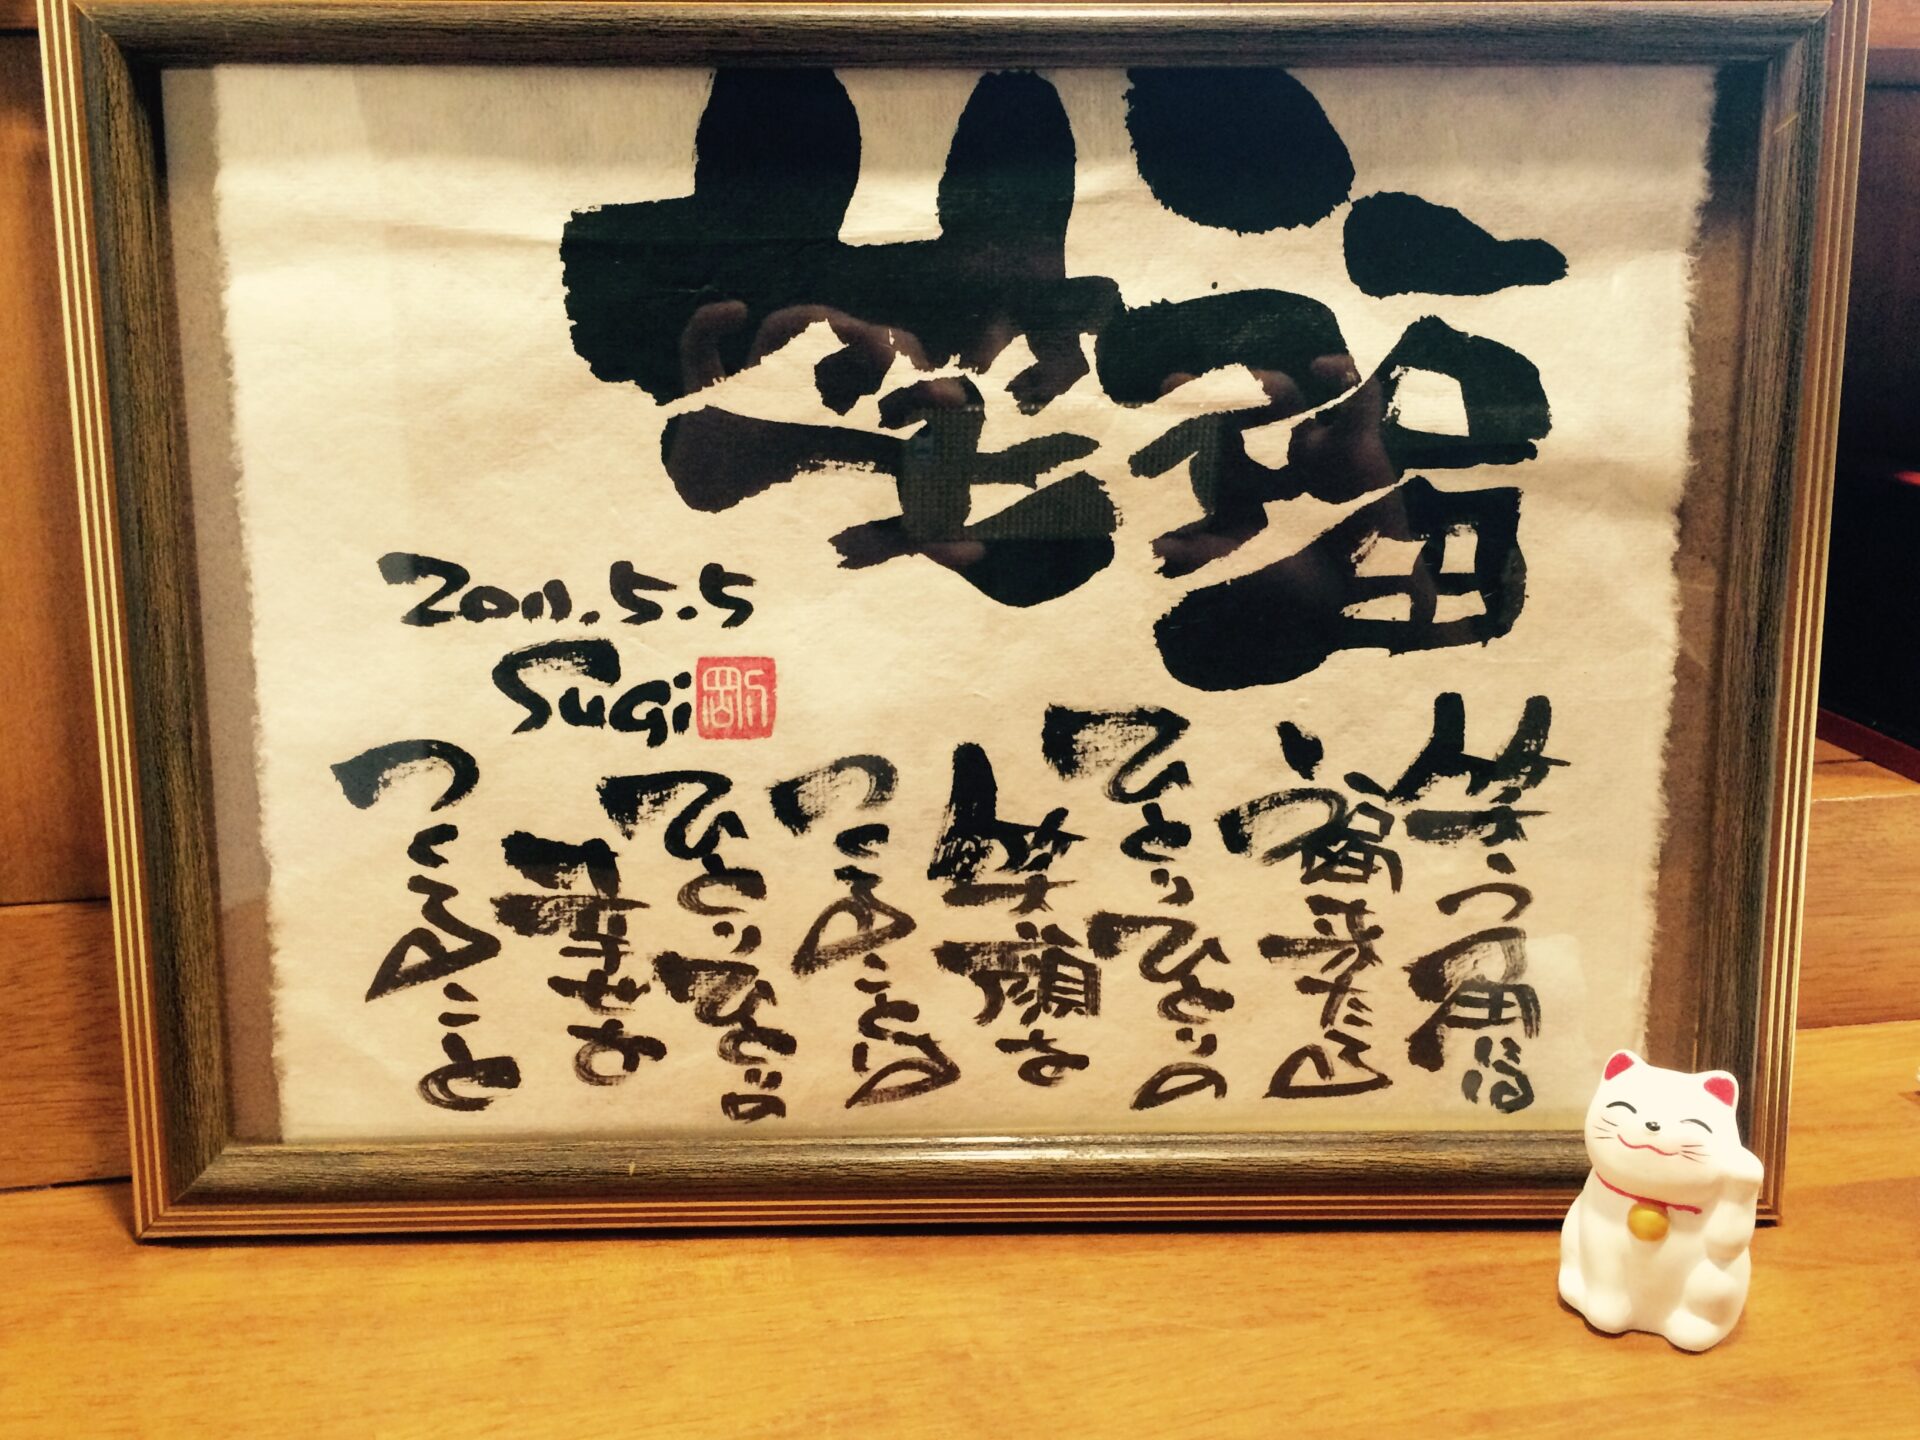 福
笑う角には
福来たる
ひとりひとりの
笑顔を
つくることは
ひとりひとりの
幸せを
つくること
2011.5.5
Sugi